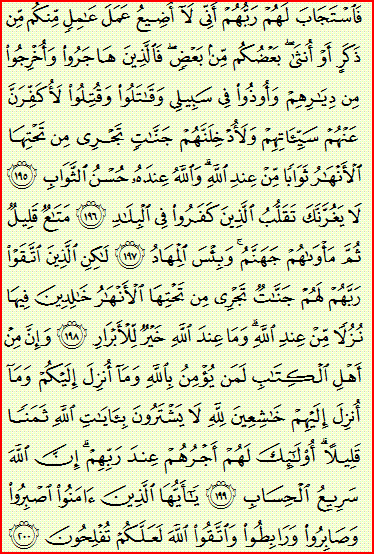 فَٱسۡتَجَابَ لَهُمۡ رَبُّهُمۡ أَنِّي لَآ أُضِيعُ عَمَلَ عَٰمِلٖ مِّنكُم مِّن
ذَكَرٍ أَوۡ أُنثَىٰۖ بَعۡضُكُم مِّنۢ بَعۡضٖۖ فَٱلَّذِينَ هَاجَرُواْ وَأُخۡرِجُواْ
مِن دِيَٰرِهِمۡ وَأُوذُواْ فِي سَبِيلِي وَقَٰتَلُواْ وَقُتِلُواْ لَأُكَفِّرَنَّ
عَنۡهُمۡ سَيِّـَٔاتِهِمۡ وَلَأُدۡخِلَنَّهُمۡ جَنَّٰتٖ تَجۡرِي مِن تَحۡتِهَا
ٱلۡأَنۡهَٰرُ ثَوَابٗا مِّنۡ عِندِ ٱللَّهِۚ وَٱللَّهُ عِندَهُۥ حُسۡنُ ٱلثَّوَابِ ١٩٥
لَا يَغُرَّنَّكَ تَقَلُّبُ ٱلَّذِينَ كَفَرُواْ فِي ٱلۡبِلَٰدِ ١٩٦ مَتَٰعٞ قَلِيلٞ
ثُمَّ مَأۡوَىٰهُمۡ جَهَنَّمُۚ وَبِئۡسَ ٱلۡمِهَادُ ١٩٧ لَٰكِنِ ٱلَّذِينَ ٱتَّقَوۡاْ
رَبَّهُمۡ لَهُمۡ جَنَّٰتٞ تَجۡرِي مِن تَحۡتِهَا ٱلۡأَنۡهَٰرُ خَٰلِدِينَ فِيهَا
نُزُلٗا مِّنۡ عِندِ ٱللَّهِۗ وَمَا عِندَ ٱللَّهِ خَيۡرٞ لِّلۡأَبۡرَارِ ١٩٨ وَإِنَّ مِنۡ
أَهۡلِ ٱلۡكِتَٰبِ لَمَن يُؤۡمِنُ بِٱللَّهِ وَمَآ أُنزِلَ إِلَيۡكُمۡ وَمَآ
أُنزِلَ إِلَيۡهِمۡ خَٰشِعِينَ لِلَّهِ لَا يَشۡتَرُونَ بِـَٔايَٰتِ ٱللَّهِ ثَمَنٗا
قَلِيلًاۚ أُوْلَٰٓئِكَ لَهُمۡ أَجۡرُهُمۡ عِندَ رَبِّهِمۡۗ إِنَّ ٱللَّهَ
سَرِيعُ ٱلۡحِسَابِ ١٩٩ يَٰٓأَيُّهَا ٱلَّذِينَ ءَامَنُواْ ٱصۡبِرُواْ
وَصَابِرُواْ وَرَابِطُواْ وَٱتَّقُواْ ٱللَّهَ لَعَلَّكُمۡ تُفۡلِحُونَ ٢٠٠